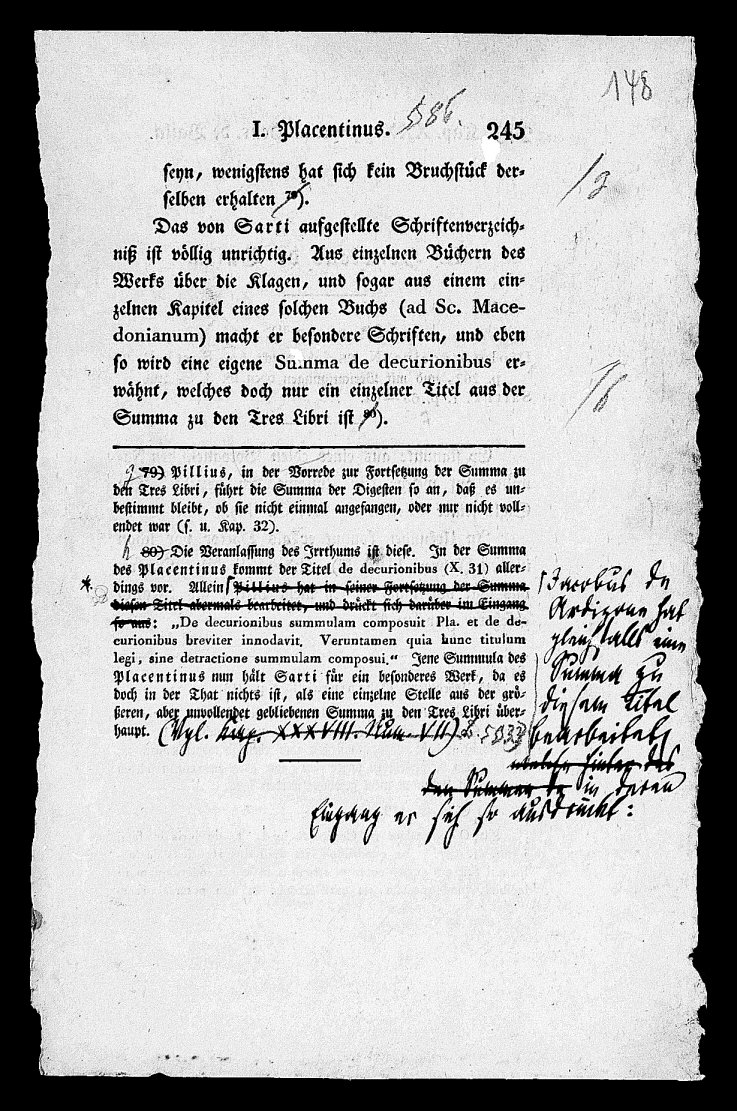 148
I. Placentinus. 586. 245
seyn, wenigstens hat sich kein Bruchstück der-
selben erhalten 79).
g
Das von Sarti aufgestellte Schriftenverzeich-
niß ist völlig unrichtig. Aus einzelnen Büchern des
Werks über die Klagen, und sogar aus einem ein-
zelnen Kapitel eines solchen Buchs (ad Sc. Mace-
donianum) macht er besondere Schriften, und eben
so wird eine eigene Summa de decurionibus er-
wähnt, welches doch nur ein einzelner Titel aus der
Summa zu den Tres Libri ist 80).
h
g 79) Pillius, in der Vorrede zur Fortsetzung der Summa zu
den Tres Libri, führt die Summa der Digesten so an, daß es un-
bestimmt bleibt, ob sie nicht einmal angefangen, oder nur nicht voll-
endet war (s. u. Kap. 32).
h 80) Die Veranlassung des Irrthums ist diese. In der Summa
des Placentinus kommt der Titel de decurionibus (X. 31) aller-
dings vor. Allein Pillius hat in seiner Fortsetzung der Summa
diesen Titel abermals bearbeitet, und drückt sich darüber im Eingang
so aus: „De decurionibus summulam composuit Pla. et de de-
curionibus breviter innodavit. Veruntamen quia hunc titulum
legi, sine detractione summulam composui.“ Jene Summula des
Placentinus nun hält Sarti für ein besonderes Werk, da es
doch in der That nichts ist, als eine einzelne Stelle aus der grö-
ßeren, aber unvollendet gebliebenen Summa zu den Tres Libri über-
haupt. (Vgl. Kap. XXXVIII. Num. VII)
Jacobus de
Ardizone hat
gleichfalls eine
Summa zu
diesem Titel
bearbeitet,
welche hinter des
den Summen in deren
Eingang er sich so ausdrückt: